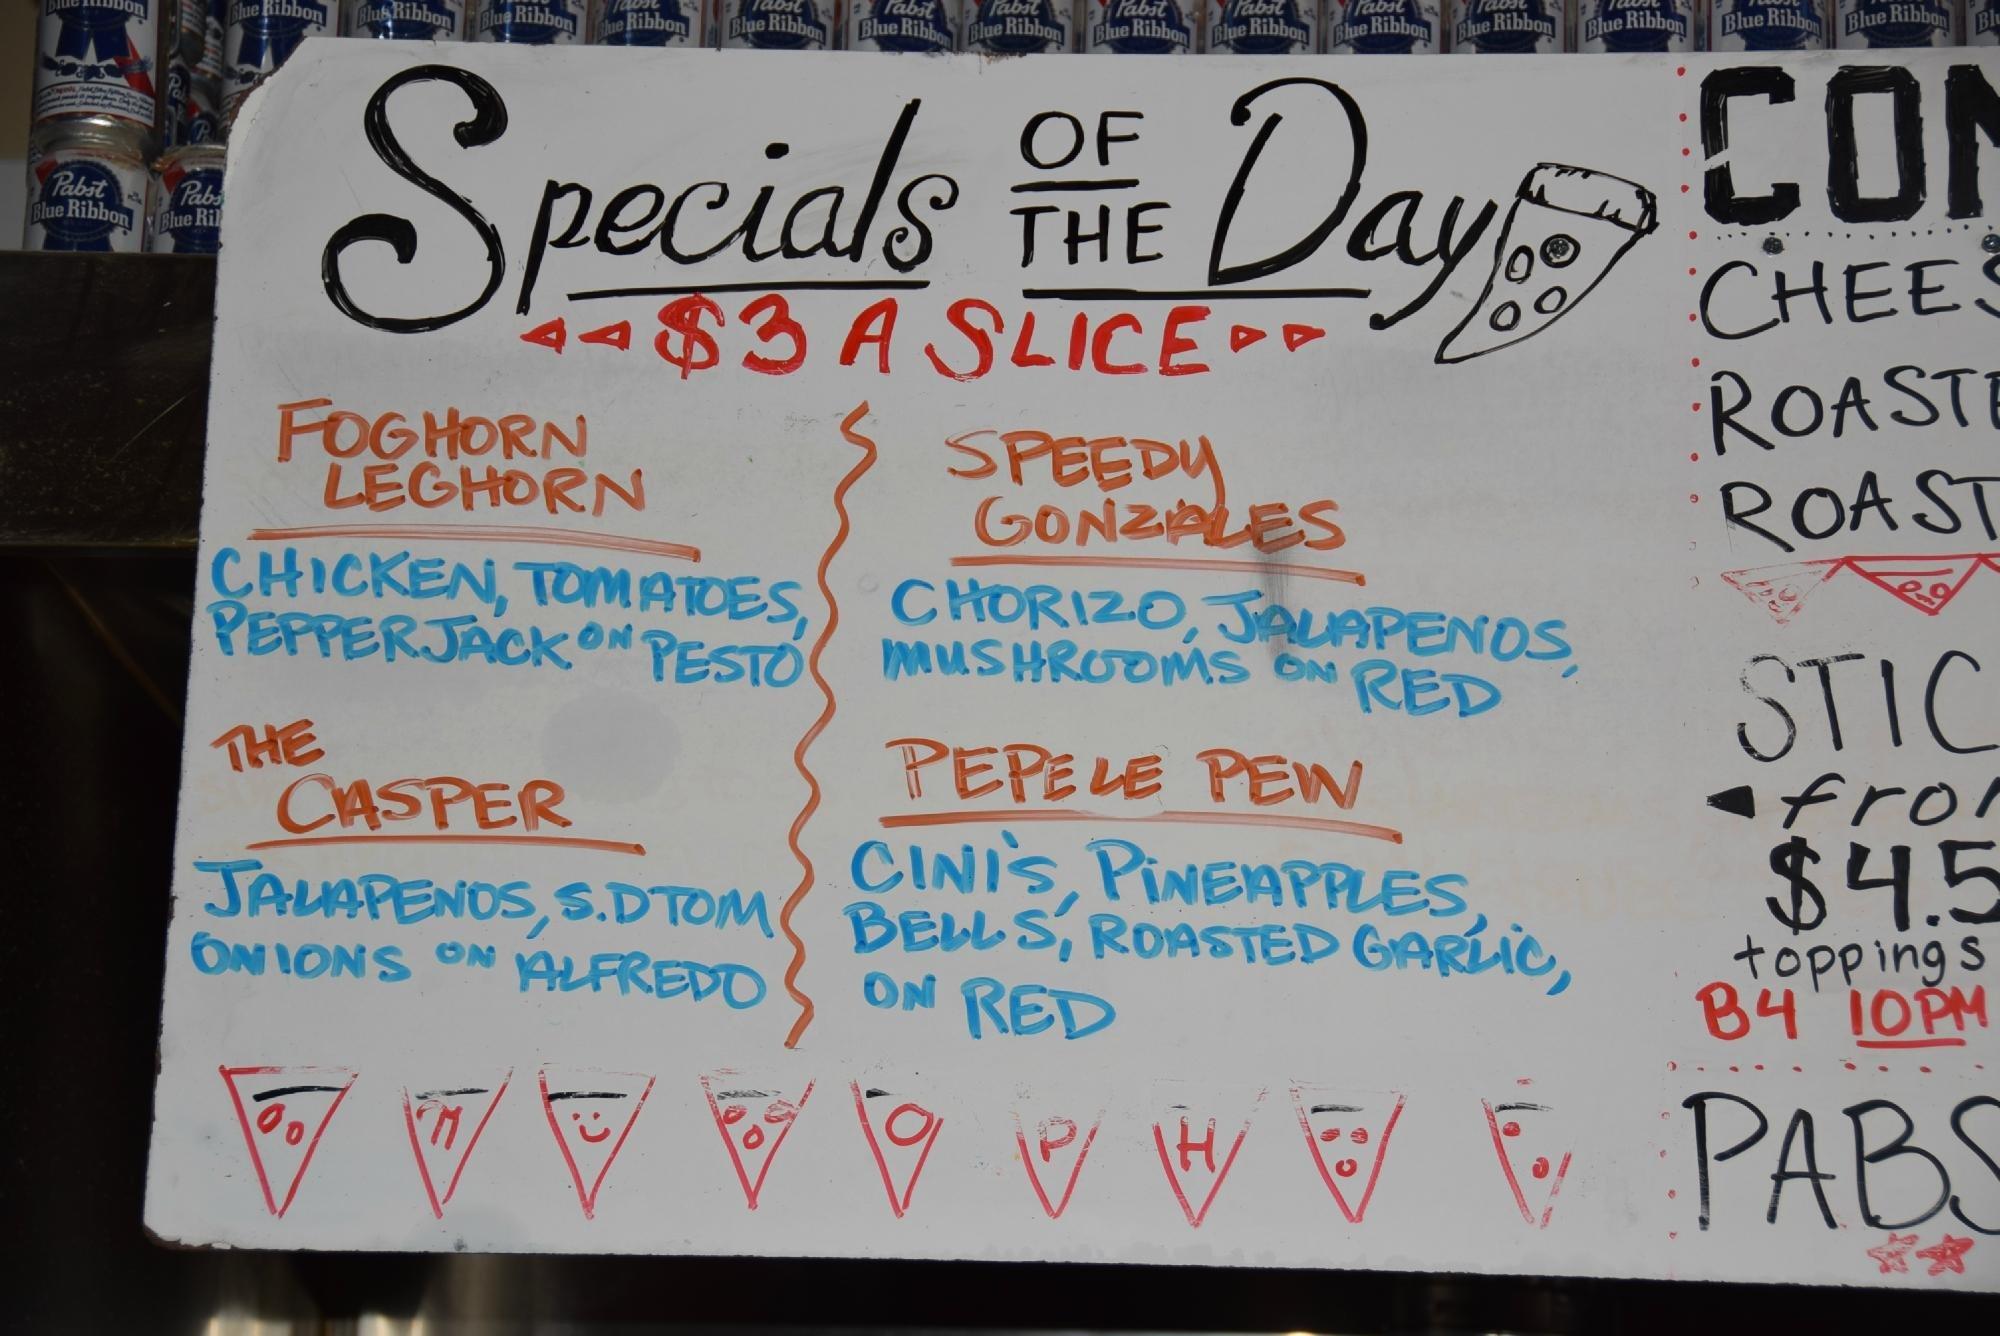 Pabst
Blue Ribbon
Pabst
Blue Ribbon
Specials OF THE Day
$3 A SLICE
FOGHORN
LEGHORN
CHICKEN, TOMATOES,
PEPPERJACK ON PESTO
THE
CASPER
JALAPENOS, S.D TOM
ONIONS ON ALFREDO
SPEEDY
GONZALES
CHORIZO, JALAPENOS,
MUSHROOMS ON RED
PEPE LE PEW
CINI'S, PINEAPPLES,
BELLS, ROASTED GARLIC,
ON RED
O P H
CHEES
ROASTE
ROAST
STIC
fro
$4.5
toppings
B4 10PM
PABS